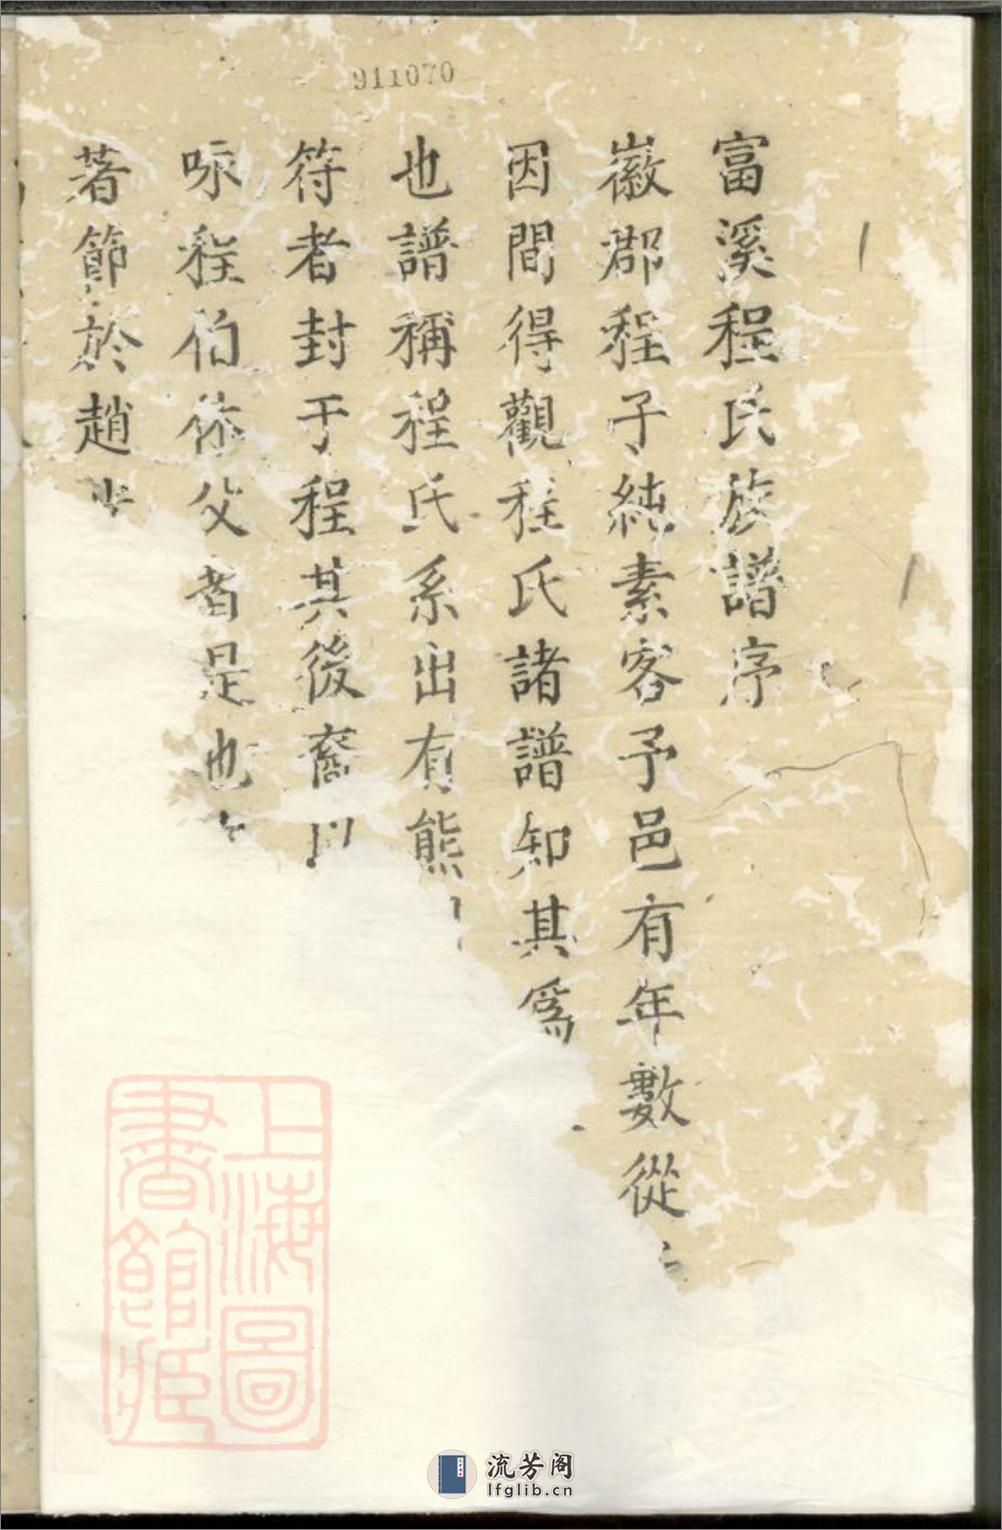 911070
富溪程氏族譜序
徽郡程子純素客予邑有年數從
因間得觀程氏諸譜知其爲
也譜稱程氏系出有熊
符者封于程其後裔
咏程伯休父者是也
著節於趙
上海圖
書館藏
流芳阁
lfglib.cn